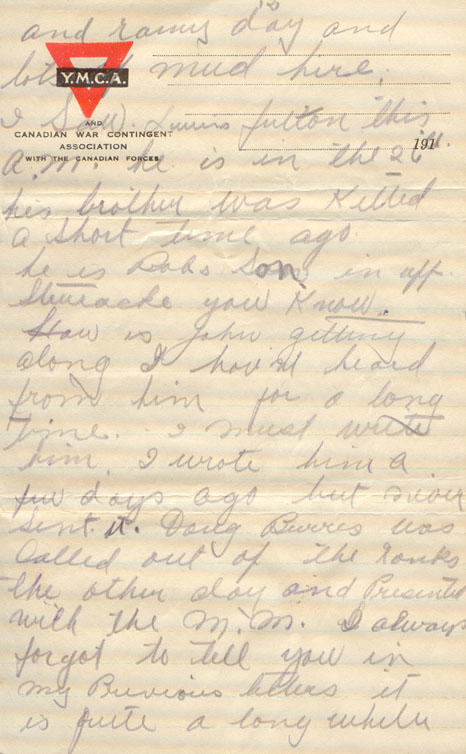 and rainy day and
lots of mud here.
Y.M.C.A.
AND
CANADIAN WAR CONTINGENT
ASSOCIATION
WITH THE CANADIAN FORCES
191
I saw fulton this
A.M. he is in the 26th
his brother was Killed
a short time ago.
he is Robs Son in upp.
you Know.
How is John getting
along I havint heard
from him for a long
time. I must write
him. I wrote him a
few days ago but never
Sent it. Doug was
Called out of the ranks
the other day and Presented
with the M.M. I always
forgot to tell you in
my Privious letters it
is quite a long while